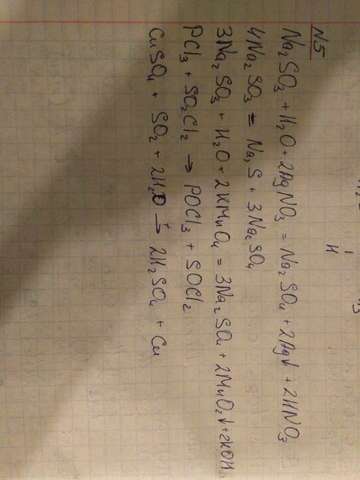 N5
Na₂SO₃ + H₂O + 2AgNO₃ = Na₂SO₄ + 2Ag↓ + 2HNO₃
4Na₂SO₃ = Na₂S + 3Na₂SO₄
3Na₂SO₃ + H₂O + 2KMnO₄ = 3Na₂SO₄ + 2MnO₂↓ + 2KOH
PCl₃ + SO₂Cl₂ → POCl₃ + SOCl₂
CuSO₄ + SO₂ + 2H₂O →ᵗ 2H₂SO₄ + Cu
H